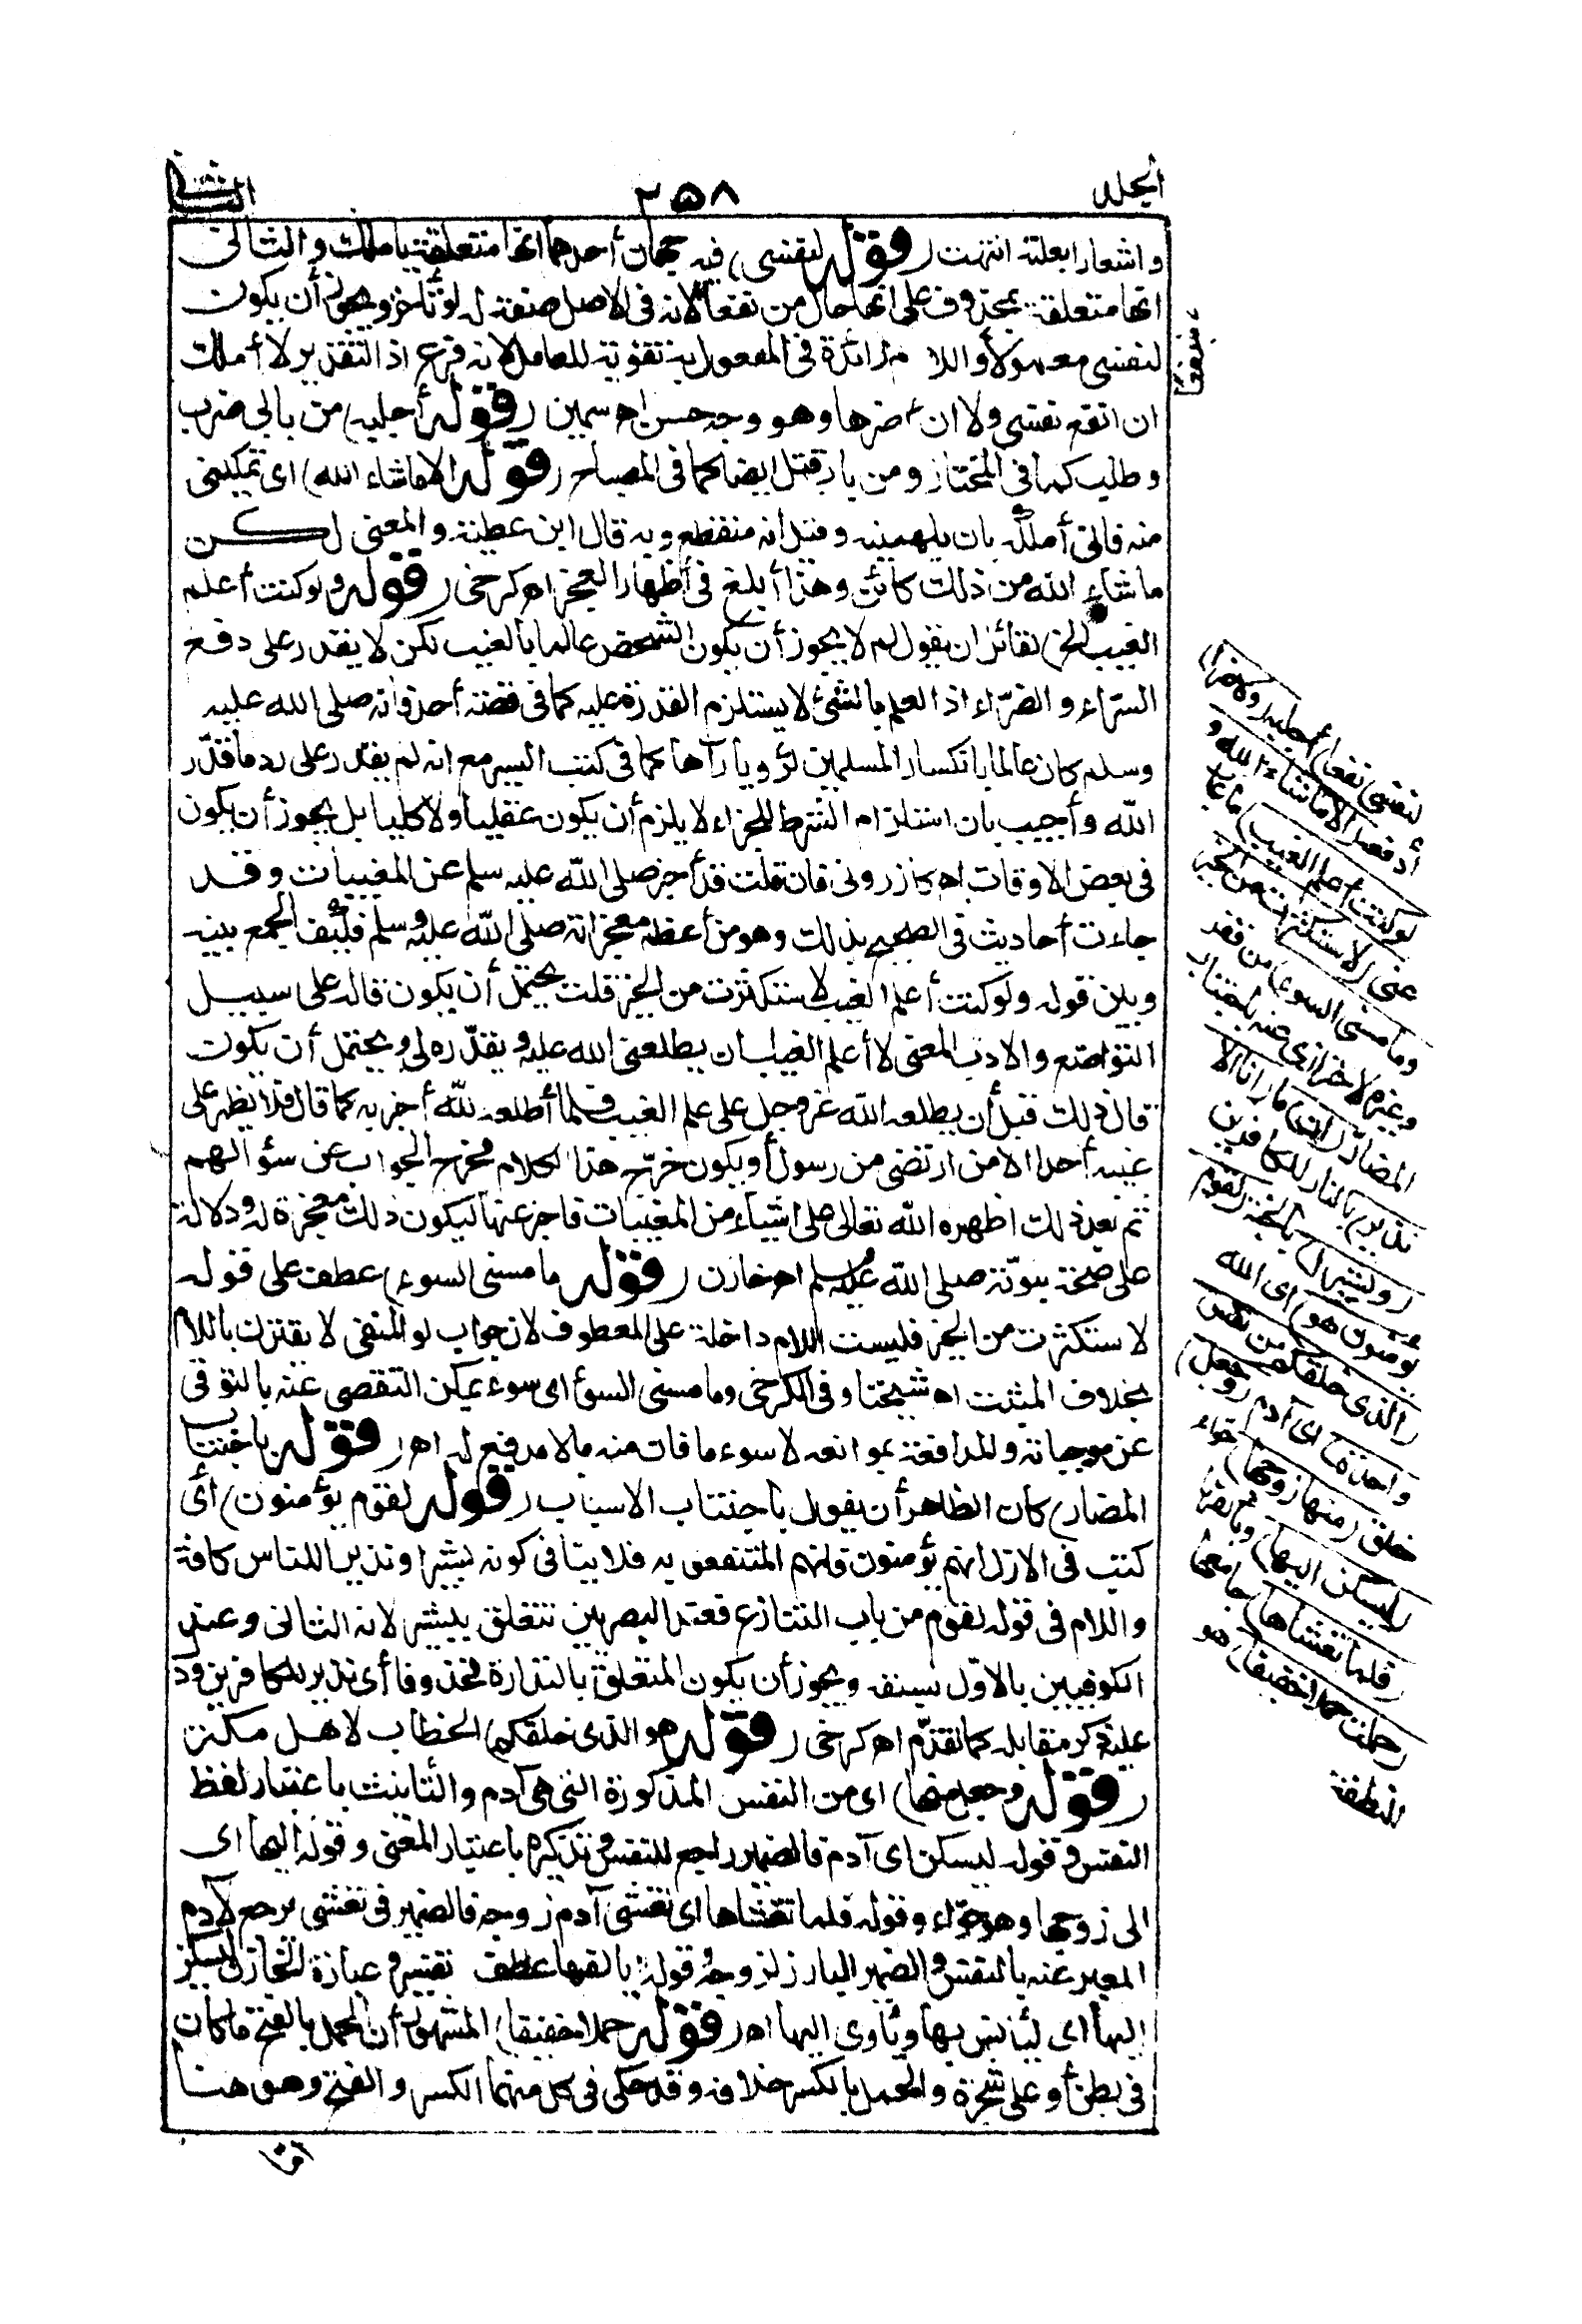 الجلد
٢٥٨
الثاني
واشعارا بعلته انتهت (قوله لنفسي) فيه وجهان أحدهما انها متعلقة باملك والثاني
انها متعلقة بمحذوف على انها حال من نفعا لانه في الاصل صفة له لو تأخر ويجوز أن يكون
لنفسي معمولا واللام زائدة في المفعول به تقوية للعامل لانه فرع اذ التقدير لا أملك
ان انفع نفسي ولا ان اضرها وهو وجه حسن اه سمين (قوله أجلبه) من بابي ضرب
وطلب كما في المختار ومن باب قتل ايضا كما في المصباح (قوله الا ما شاء الله) اى تمكيني
منه فاني أملكه بان يلهمنيه وقيل انه منقطع وبه قال ابن عطية والمعنى لكن
ما شاء الله من ذلك كائن وهذا أبلغ في أظهار العجز اه كرخي (قوله ولو كنت أعلم
الغيب الخ) لقائل ان يقول لم لا يجوز أن يكون الشخص عالما بالغيب لكن لا يقدر على دفع
السراء والضراء اذ العلم بالشئ لا يستلزم القدرة عليه كما في قصة أحد فانه صلى الله عليه
وسلم كان عالما بانكسار المسلمين لرؤيا رآها كما في كتب السير مع انه لم يقدر على رد ما قدّر
اللّه وأجيب بان استلزام الشرط للجزاء لا يلزم أن يكون عقليا ولا كليا بل يجوز أن يكون
في بعض الاوقات اه كازروني فان قلت قد أخبر صلى اللّه عليه سلم عن المغيبات وقد
جاءت أحاديث في الصحيح بذلك وهو من أعظم معجزاته صلى اللّه عليه وسلم فكيف الجمع بينه
وبين قوله ولو كنت أعلم الغيب لاستكثرت من الخير قلت يحتمل أن يكون قاله على سبيل
التواضع والادب المعنى لا أعلم الغيب الا ان يطلعني الله عليه ويقدّره لي ويحتمل أن يكون
قال ذلك قبل أن يطلعه اللّه عز وجل على علم الغيب فلما أطلعه اللّه أخبر به كما قال فلا يظهر على
غيبه أحدا الا من ارتضى من رسول أو يكون خرّج هذا الكلام مخرج الجواب عن سؤالهم
ثم بعد ذلك اظهره اللّه تعالى على اشياء من المغيبات فاخبر عنها ليكون ذلك معجزة له ودلالة
على صحة نبوّته صلى اللّه عليه وسلم اه خازن (قوله ما مسني السوء) عطف على قوله
لاستكثرت من الخير فليست اللام داخلة على المعطوف لان جواب لو المنفي لا يقترن باللام
بخلاف المثبت اه شيخنا وفي الكرخي وما مسني السوء اى سوء يمكن التقصي عنه بالتوقي
عن موجباته والمدافعة بموانعه لا سوء ما فات منه مالا مدفع له اه (قوله باجتناب
المضار) كان الظاهر أن يقول باجتناب الاسباب (قوله لقوم يؤمنون) أى
كتب في الازل انهم يؤمنون فانهم المنتفعون به فلا ينافي كونه بشيرا ونذيرا للناس كافة
واللام في قوله لقوم من باب التنازع فعند البصريين تتعلق ببشير لانه الثاني وعند
الكوفيين بالاوّل لسبقه ويجوز أن يكون المتعلق بالنذارة محذوفا أى نذير للكافرين ودل
عليه ذكر مقابله كما تقدّم اه كرخي (قوله هو الذى خلقكم) الخطاب لاهل مكة
(قوله وجعل منها) اى من النفس المذكورة التي هي آدم والتأنيث باعتبار لفظ
النفس وقوله ليسكن اى آدم فالضمير راجع للنفس وتذكيره باعتبار المعنى وقوله اليها اى
الى زوجها وهو حوّاء وقوله فلما تغشاها اى تغشى آدم زوجه فالضمير في تغشى يرجع لآدم
المعبر عنه بالنفس والضمير البارز لزوجه وقوله يالفها عطف تفسير وعبارة الخازن ليسكن
اليها أى ليأنس بها ويأوى اليها اه (قوله حملا خفيفا) المشهور أن الحمل بالفتح ما كان
في بطن أو على شجرة والحمل بالكسر خلافه وقد حكى في كل منهما الكسر والفتح وهو هنا
لنفسي نفعا) أجلبه (ولا ضرا)
أدفعه (الا ما شاء الله و
لو كنت أعلم الغيب) ما غاب
عني (لاستكثرت من الخير
وما مسني السوء) من فقر
وغيره لاحترازى عنه باجتناب
المضار (ان) ما (انا الا
نذير) بالنار للكافرين
(وبشير) بالجنة (لقوم
يؤمنون هو) اى الله
(الذى خلقكم من نفس
واحدة) اى آدم (وجعل)
خلق (منها زوجها) حواء
(ليسكن اليها) ويألفها
(فلما تغشاها) جامعها
(حملت حملا خفيفا) هو
النطفة